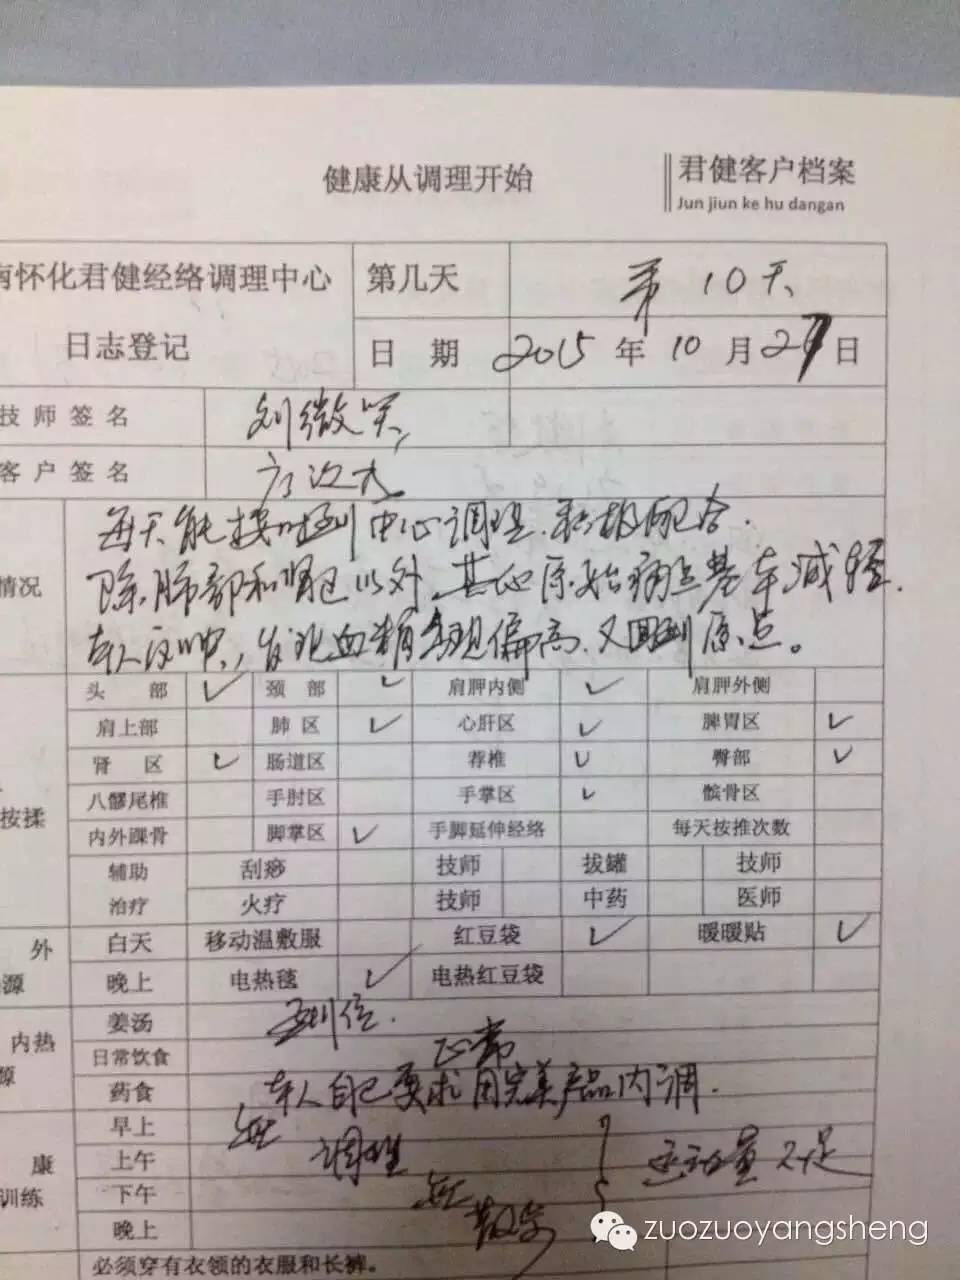 健康从调理开始
君健客户档案
Jun jiun ke hu dangan
南怀化君健经络调理中心
日志登记
第几天 第10天
日 期 2015年10月27日
技师签名 刘微笑
客户签名
情况
每天能按时到中心调理,积极配合.
除肺部和肾区以外,其他原始病点基本减轻.
本人反映,发现血糖多现偏高,又回到原点。
头 部 ✓ 颈 部 ✓ 肩胛内侧 ✓ 肩胛外侧
肩上部 肺 区 ✓ 心肝区 ✓ 脾胃区 ✓
肾 区 ✓ 肠道区 荐椎 ✓ 臀部 ✓
按揉 八髎尾椎 手肘区 手掌区 ✓ 髌骨区
内外踝骨 脚掌区 ✓ 手脚延伸经络 每天按推次数
辅助 刮痧 技师 拔罐 技师
治疗 火疗 技师 中药 医师
外 白天 移动温敷服 红豆袋 ✓ 暖暖贴 ✓
源 晚上 电热毯 ✓ 电热红豆袋
内热 姜汤 到位.
源 日常饮食 正常
药食 本人自己要求用完美产品内调.
早上 无
康 上午 调理 运动量不足
训练 下午 无
晚上 散步
必须穿有衣领的衣服和长裤。
zuozuoyangsheng